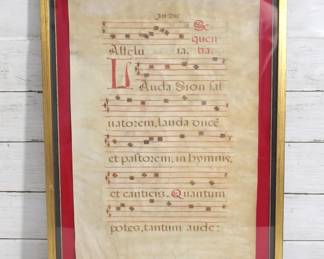 Se
quen
Allelu ia, tia.
Lauda Sion sal
uatorem, lauda ducē
et pastorem, in hymnis,
et canticis. Quantum
potes, tantum aude: